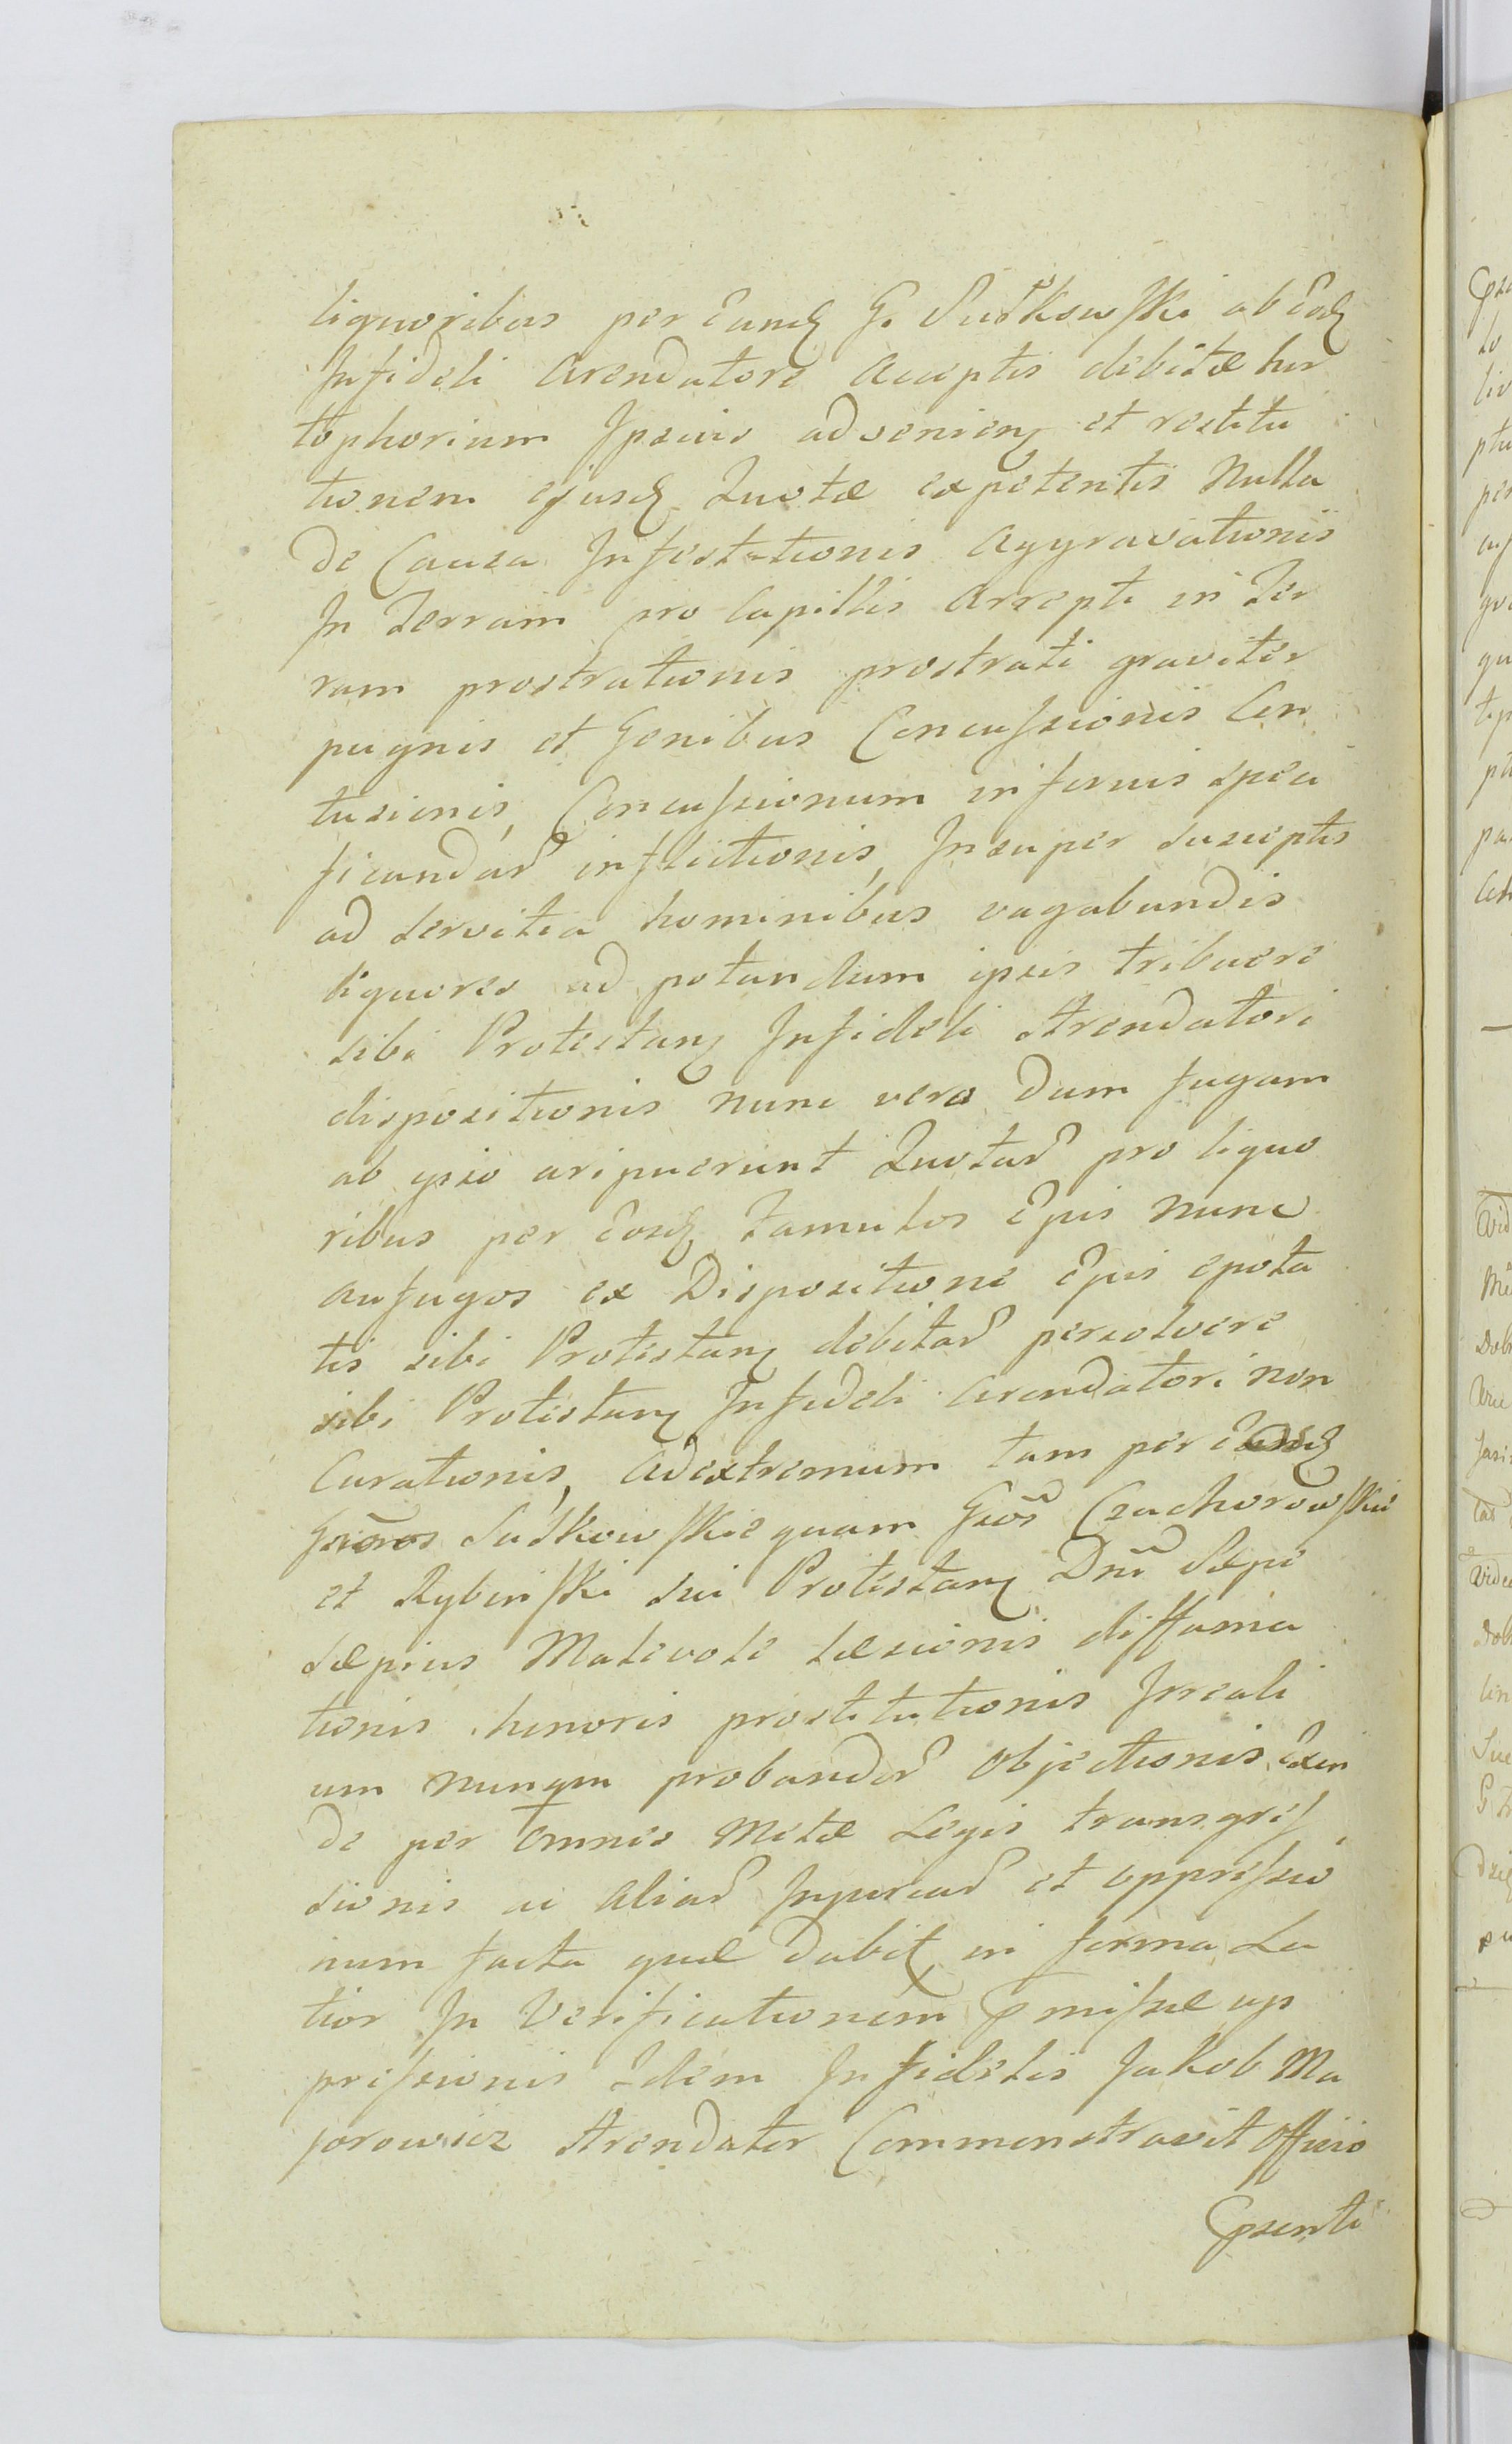 liquoribus per Eund G. Sutkowski ab Eod
Infideli Arendatore Acceptis debitæ her
tophorium Ipsius advenien et restitu
tionem ejusd Quotæ expetentis Nulla
de Causa Infestationis Aggravationis
In Terram pro Capillis Arrepti in Ter
ram prostrationis prostrati graviter
pugnis et Genibus Concussionis Con
tusionis, Concussionum inferius speci
ficandar inflictionis, Insuper susceptis
ad servitia hominibus vagabundis
liquores ad potandum ipsis tribuere
sibi Protestan Infideli Arendatori
dispositionis nunc vero dum fugam
ab ipso aripuerunt Quotar pro liquo
ribus per Eosd Famulos Ejus nunc
aufugos ex Dispositione Ejus epota
tis sibi Protestan debitar persolvere
sibi Protestan Infideli Arendatori non
Curationis, Ad extremum tam per
Gsos Sutkowskie quam Gsos Czachorowskie
et Rybinski sui Protestan Dni Sæpe
Sæpius Malevole læsionis diffama
tionis honoris prostitutionis Irreali
um nunqm probandar Objectionis, Exin
de per Omnes Metæ Legis transgres
sionis ac Aliar Injuriar et oppressio
num facta quæ dabit in forma La
tior In Verificationem Pmissæ op
pressionis Idem Infidelis Jakob Ma
jorowicz Arendator Commonstravit Officio
Psenti